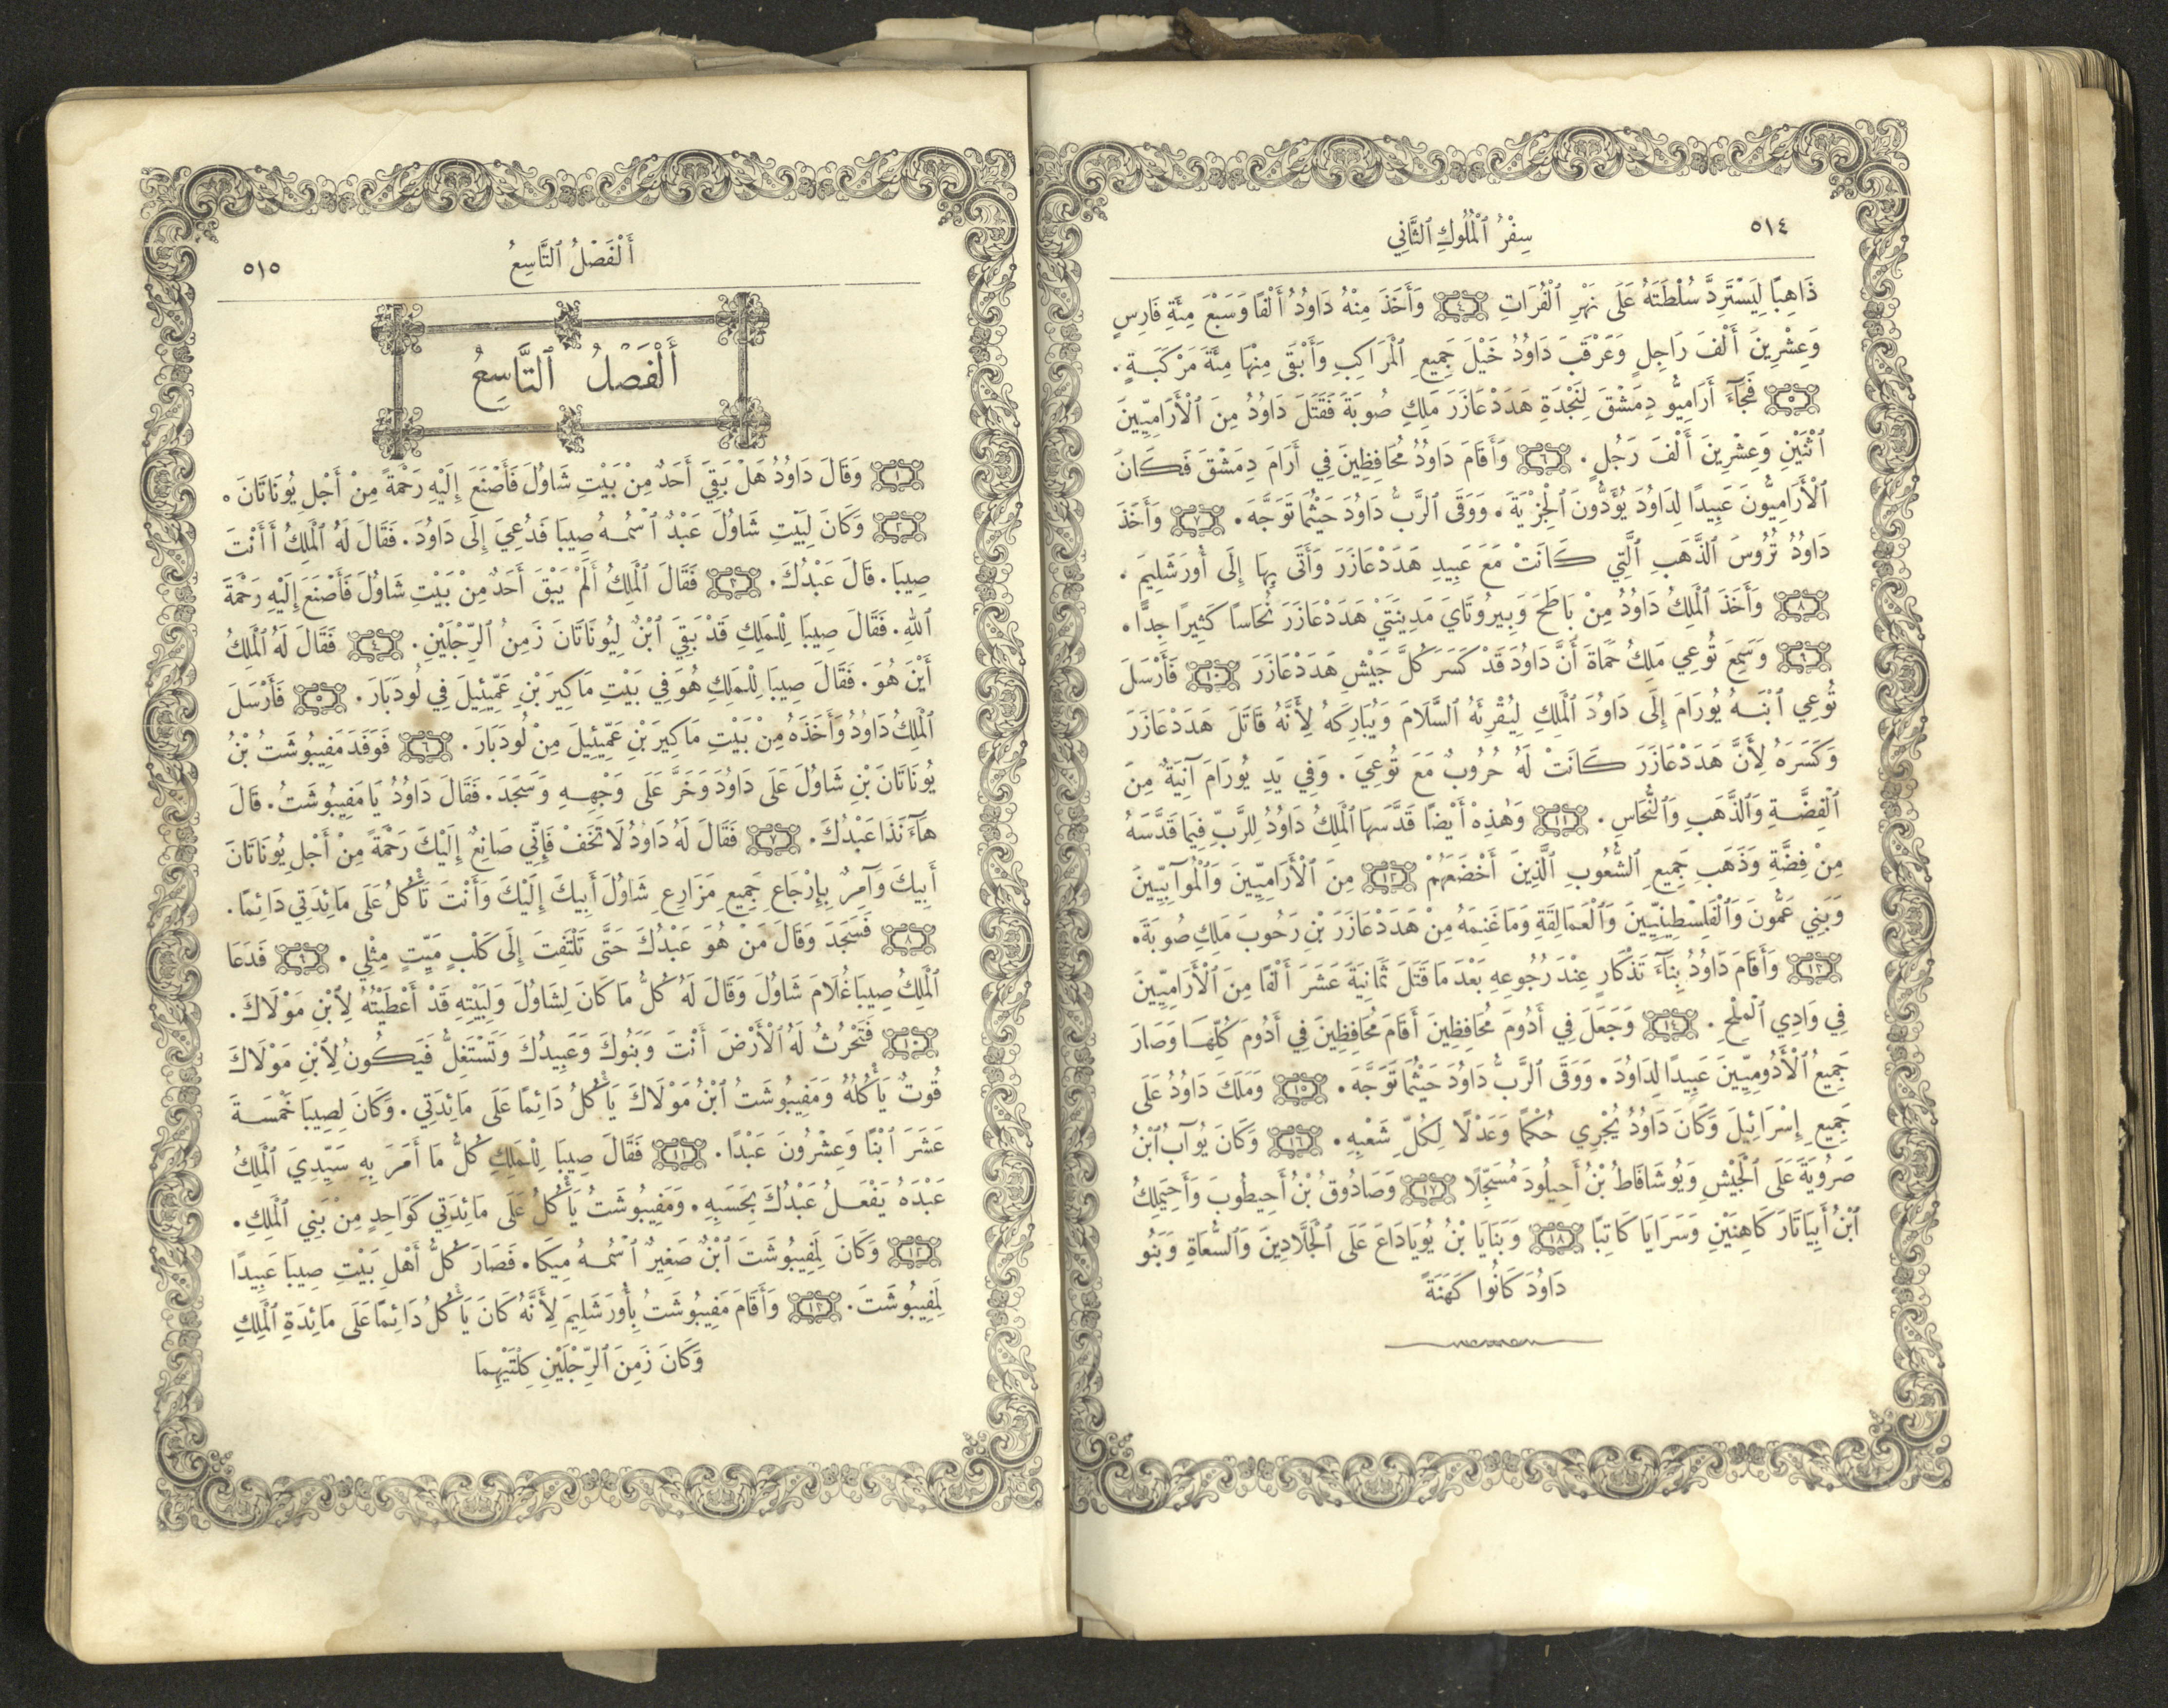 ٥١٤
سِفْرُ ٱلْمُلُوكِ ٱلثَّانِي
ذَاهِبًا لِيَسْتَرِدَّ سُلْطَتَهُ عَلَى نَهْرِ ٱلْفُرَاتِ ٤ وَأَخَذَ مِنْهُ دَاوُدُ أَلْفًا وَسَبْعَ مِئَةِ فَارِسٍ
وَعِشْرِينَ أَلْفَ رَاجِلٍ وَعَرْقَبَ دَاوُدُ خَيْلَ جَمِيعِ ٱلْمَرَاكِبِ وَأَبْقَى مِنْهَا مِئَةَ مَرْكَبَةٍ.
٥ فَجَآءَ أَرَامِيُّو دِمَشْقَ لِنَجْدَةِ هَدَدْعَازَرَ مَلِكِ صُوبَةَ فَقَتَلَ دَاوُدُ مِنَ ٱلْأَرَامِيِّينَ
ٱثْنَيْنِ وَعِشْرِينَ أَلْفَ رَجُلٍ. ٦ وَأَقَامَ دَاوُدُ مُحَافِظِينَ فِي أَرَامَ دِمَشْقَ فَكَانَ
ٱلْأَرَامِيُّونَ عَبِيدًا لِدَاوُدَ يُؤَدُّونَ ٱلْجِزْيَةَ. وَوَقَى ٱلرَّبُّ دَاوُدَ حَيْثُمَا تَوَجَّهَ. ٧ وَأَخَذَ
دَاوُدُ تُرُوسَ ٱلذَّهَبِ ٱلَّتِي كَانَتْ مَعَ عَبِيدِ هَدَدْعَازَرَ وَأَتَى بِهَا إِلَى أُورَشَلِيمَ.
٨ وَأَخَذَ ٱلْمَلِكُ دَاوُدُ مِنْ بَاطَحَ وَبِيرُوتَايَ مَدِينَتَيْ هَدَدْعَازَرَ نُحَاسًا كَثِيرًا جِدًّا.
٩ وَسَمِعَ تُوعِي مَلِكُ حَمَاةَ أَنَّ دَاوُدَ قَدْ كَسَرَ كُلَّ جَيْشِ هَدَدْعَازَرَ ١٠ فَأَرْسَلَ
تُوعِي ٱبْنَهُ يُورَامَ إِلَى دَاوُدَ ٱلْمَلِكِ لِيُقْرِئَهُ ٱلسَّلَامَ وَيُبَارِكَهُ لِأَنَّهُ قَاتَلَ هَدَدْعَازَرَ
وَكَسَرَهُ لِأَنَّ هَدَدْعَازَرَ كَانَتْ لَهُ حُرُوبٌ مَعَ تُوعِيَ. وَفِي يَدِ يُورَامَ آنِيَةٌ مِنَ
ٱلْفِضَّةِ وَٱلذَّهَبِ وَٱلنُّحَاسِ. ١١ وَهٰذِهْ أَيْضًا قَدَّسَهَا ٱلْمَلِكُ دَاوُدُ لِلرَّبِّ فِيمَا قَدَّسَهُ
مِنْ فِضَّةِ وَذَهَبِ جَمِيعِ ٱلشُّعُوبِ ٱلَّذِينَ أَخْضَعَهُمْ ١٢ مِنَ ٱلْأَرَامِيِّينَ وَٱلْمُوآبِيِّينَ
وَبَنِي عَمُّونَ وَٱلْفَلِسْطِينِيِّينَ وَٱلْعَمَالِقَةِ وَمَا غَنِمَهُ مِنْ هَدَدْعَازَرَ بْنِ رَحُوبَ مَلِكِ صُوبَةَ.
١٣ وَأَقَامَ دَاوُدُ بِنَآءَ تَذْكَارٍ عِنْدَ رُجُوعِهِ بَعْدَ مَا قَتَلَ ثَمَانِيَةَ عَشَرَ أَلْفًا مِنَ ٱلْأَرَامِيِّينَ
فِي وَادِي ٱلْمِلْحِ. ١٤ وَجَعَلَ فِي أَدُومَ مُحَافِظِينَ أَقَامَ مُحَافِظِينَ فِي أَدُومَ كُلِّهَا وَصَارَ
جَمِيعُ ٱلْأَدُومِيِّينَ عَبِيدًا لِدَاوُدَ. وَوَقَى ٱلرَّبُّ دَاوُدَ حَيْثُمَا تَوَجَّهَ. ١٥ وَمَلَكَ دَاوُدُ عَلَى
جَمِيعِ إِسْرَائِيلَ وَكَانَ دَاوُدُ يُجْرِي حُكْمًا وَعَدْلًا لِكُلِّ شَعْبِهِ. ١٦ وَكَانَ يُوآبُ ٱبْنُ
صَرُويَةَ عَلَى ٱلْجَيْشِ وَيُوشَافَاطُ بْنُ أَحِيلُودَ مُسَجِّلًا ١٧ وَصَادُوقُ بْنُ أَحِيطُوبَ وَأَحِيمَلِكُ
ٱبْنُ أَبِيَاتَارَ كَاهِنَيْنِ وَسَرَايَا كَاتِبًا ١٨ وَبَنَايَا بْنُ يُويَادَاعَ عَلَى ٱلْجَلَّادِينَ وَٱلسُّعَاةِ وَبَنُو
دَاوُدَ كَانُوا كَهَنَةً
أَلْفَصْلُ ٱلتَّاسِعُ
٥١٥
أَلْفَصْلُ ٱلتَّاسِعُ
١ وَقَالَ دَاوُدُ هَلْ بَقِيَ أَحَدٌ مِنْ بَيْتِ شَاوُلَ فَأَصْنَعَ إِلَيْهِ رَحْمَةً مِنْ أَجْلِ يُونَاتَانَ.
٢ وَكَانَ لِبَيْتِ شَاوُلَ عَبْدٌ ٱسْمُهُ صِيبَا فَدُعِيَ إِلَى دَاوُدَ. فَقَالَ لَهُ ٱلْمَلِكُ أَأَنْتَ
صِيبَا. قَالَ عَبْدُكَ. ٣ فَقَالَ ٱلْمَلِكُ أَلَمْ يَبْقَ أَحَدٌ مِنْ بَيْتِ شَاوُلَ فَأَصْنَعَ إِلَيْهِ رَحْمَةَ
ٱللهِ. فَقَالَ صِيبَا لِلْمَلِكِ قَدْ بَقِيَ ٱبْنٌ لِيُونَاتَانَ زَمِنُ ٱلرِّجْلَيْنِ. ٤ فَقَالَ لَهُ ٱلْمَلِكُ
أَيْنَ هُوَ. فَقَالَ صِيبَا لِلْمَلِكِ هُوَ فِي بَيْتِ مَاكِيرَ بْنِ عَمِّيئِيلَ فِي لُودَبَارَ. ٥ فَأَرْسَلَ
ٱلْمَلِكُ دَاوُدُ وَأَخَذَهُ مِنْ بَيْتِ مَاكِيرَ بْنِ عَمِّيئِيلَ مِنْ لُودَبَارَ. ٦ فَوَفَدَ مَفِيبُوشَتُ بْنُ
يُونَاتَانَ بْنِ شَاوُلَ عَلَى دَاوُدَ وَخَرَّ عَلَى وَجْهِهِ وَسَجَدَ. فَقَالَ دَاوُدُ يَا مَفِيبُوشَتُ. قَالَ
هَآءَنَذَا عَبْدُكَ. ٧ فَقَالَ لَهُ دَاوُدُ لَا تَخَفْ فَإِنِّي صَانِعٌ إِلَيْكَ رَحْمَةً مِنْ أَجْلِ يُونَاتَانَ
أَبِيكَ وَآمِرٌ بِإِرْجَاعِ جَمِيعِ مَزَارِعِ شَاوُلَ أَبِيكَ إِلَيْكَ وَأَنْتَ تَأْكُلُ عَلَى مَائِدَتِي دَائِمًا.
٨ فَسَجَدَ وَقَالَ مَنْ هُوَ عَبْدُكَ حَتَّى تَلْتَفِتَ إِلَى كَلْبٍ مَيِّتٍ مِثْلِي. ٩ فَدَعَا
ٱلْمَلِكُ صِيبَا غُلَامَ شَاوُلَ وَقَالَ لَهُ كُلُّ مَا كَانَ لِشَاوُلَ وَلِبَيْتِهِ قَدْ أَعْطَيْتُهُ لِٱبْنِ مَوْلَاكَ.
١٠ فَتَحْرُثُ لَهُ ٱلْأَرْضَ أَنْتَ وَبَنُوكَ وَعَبِيدُكَ وَتَسْتَغِلُّ فَيَكُونُ لِٱبْنِ مَوْلَاكَ
قُوتٌ يَأْكُلُهُ وَمَفِيبُوشَتُ ٱبْنُ مَوْلَاكَ يَأْكُلُ دَائِمًا عَلَى مَائِدَتِي. وَكَانَ لِصِيبَا خَمْسَةَ
عَشَرَ ٱبْنًا وَعِشْرُونَ عَبْدًا. ١١ فَقَالَ صِيبَا لِلْمَلِكِ كُلُّ مَا أَمَرَ بِهِ سَيِّدِيَ ٱلْمَلِكُ
عَبْدَهُ يَفْعَلُ عَبْدُكَ بِحَسَبِهِ. وَمَفِيبُوشَتُ يَأْكُلُ عَلَى مَائِدَتِي كَوَاحِدٍ مِنْ بَنِي ٱلْمَلِكِ.
١٢ وَكَانَ لِمَفِيبُوشَتَ ٱبْنٌ صَغِيرٌ ٱسْمُهُ مِيكَا. فَصَارَ كُلُّ أَهْلِ بَيْتِ صِيبَا عَبِيدًا
لِمَفِيبُوشَتَ. ١٣ وَأَقَامَ مَفِيبُوشَتُ بِأُورَشَلِيمَ لِأَنَّهُ كَانَ يَأْكُلُ دَائِمًا عَلَى مَائِدَةِ ٱلْمَلِكِ
وَكَانَ زَمِنَ ٱلرِّجْلَيْنِ كِلْتَيْهِمَا